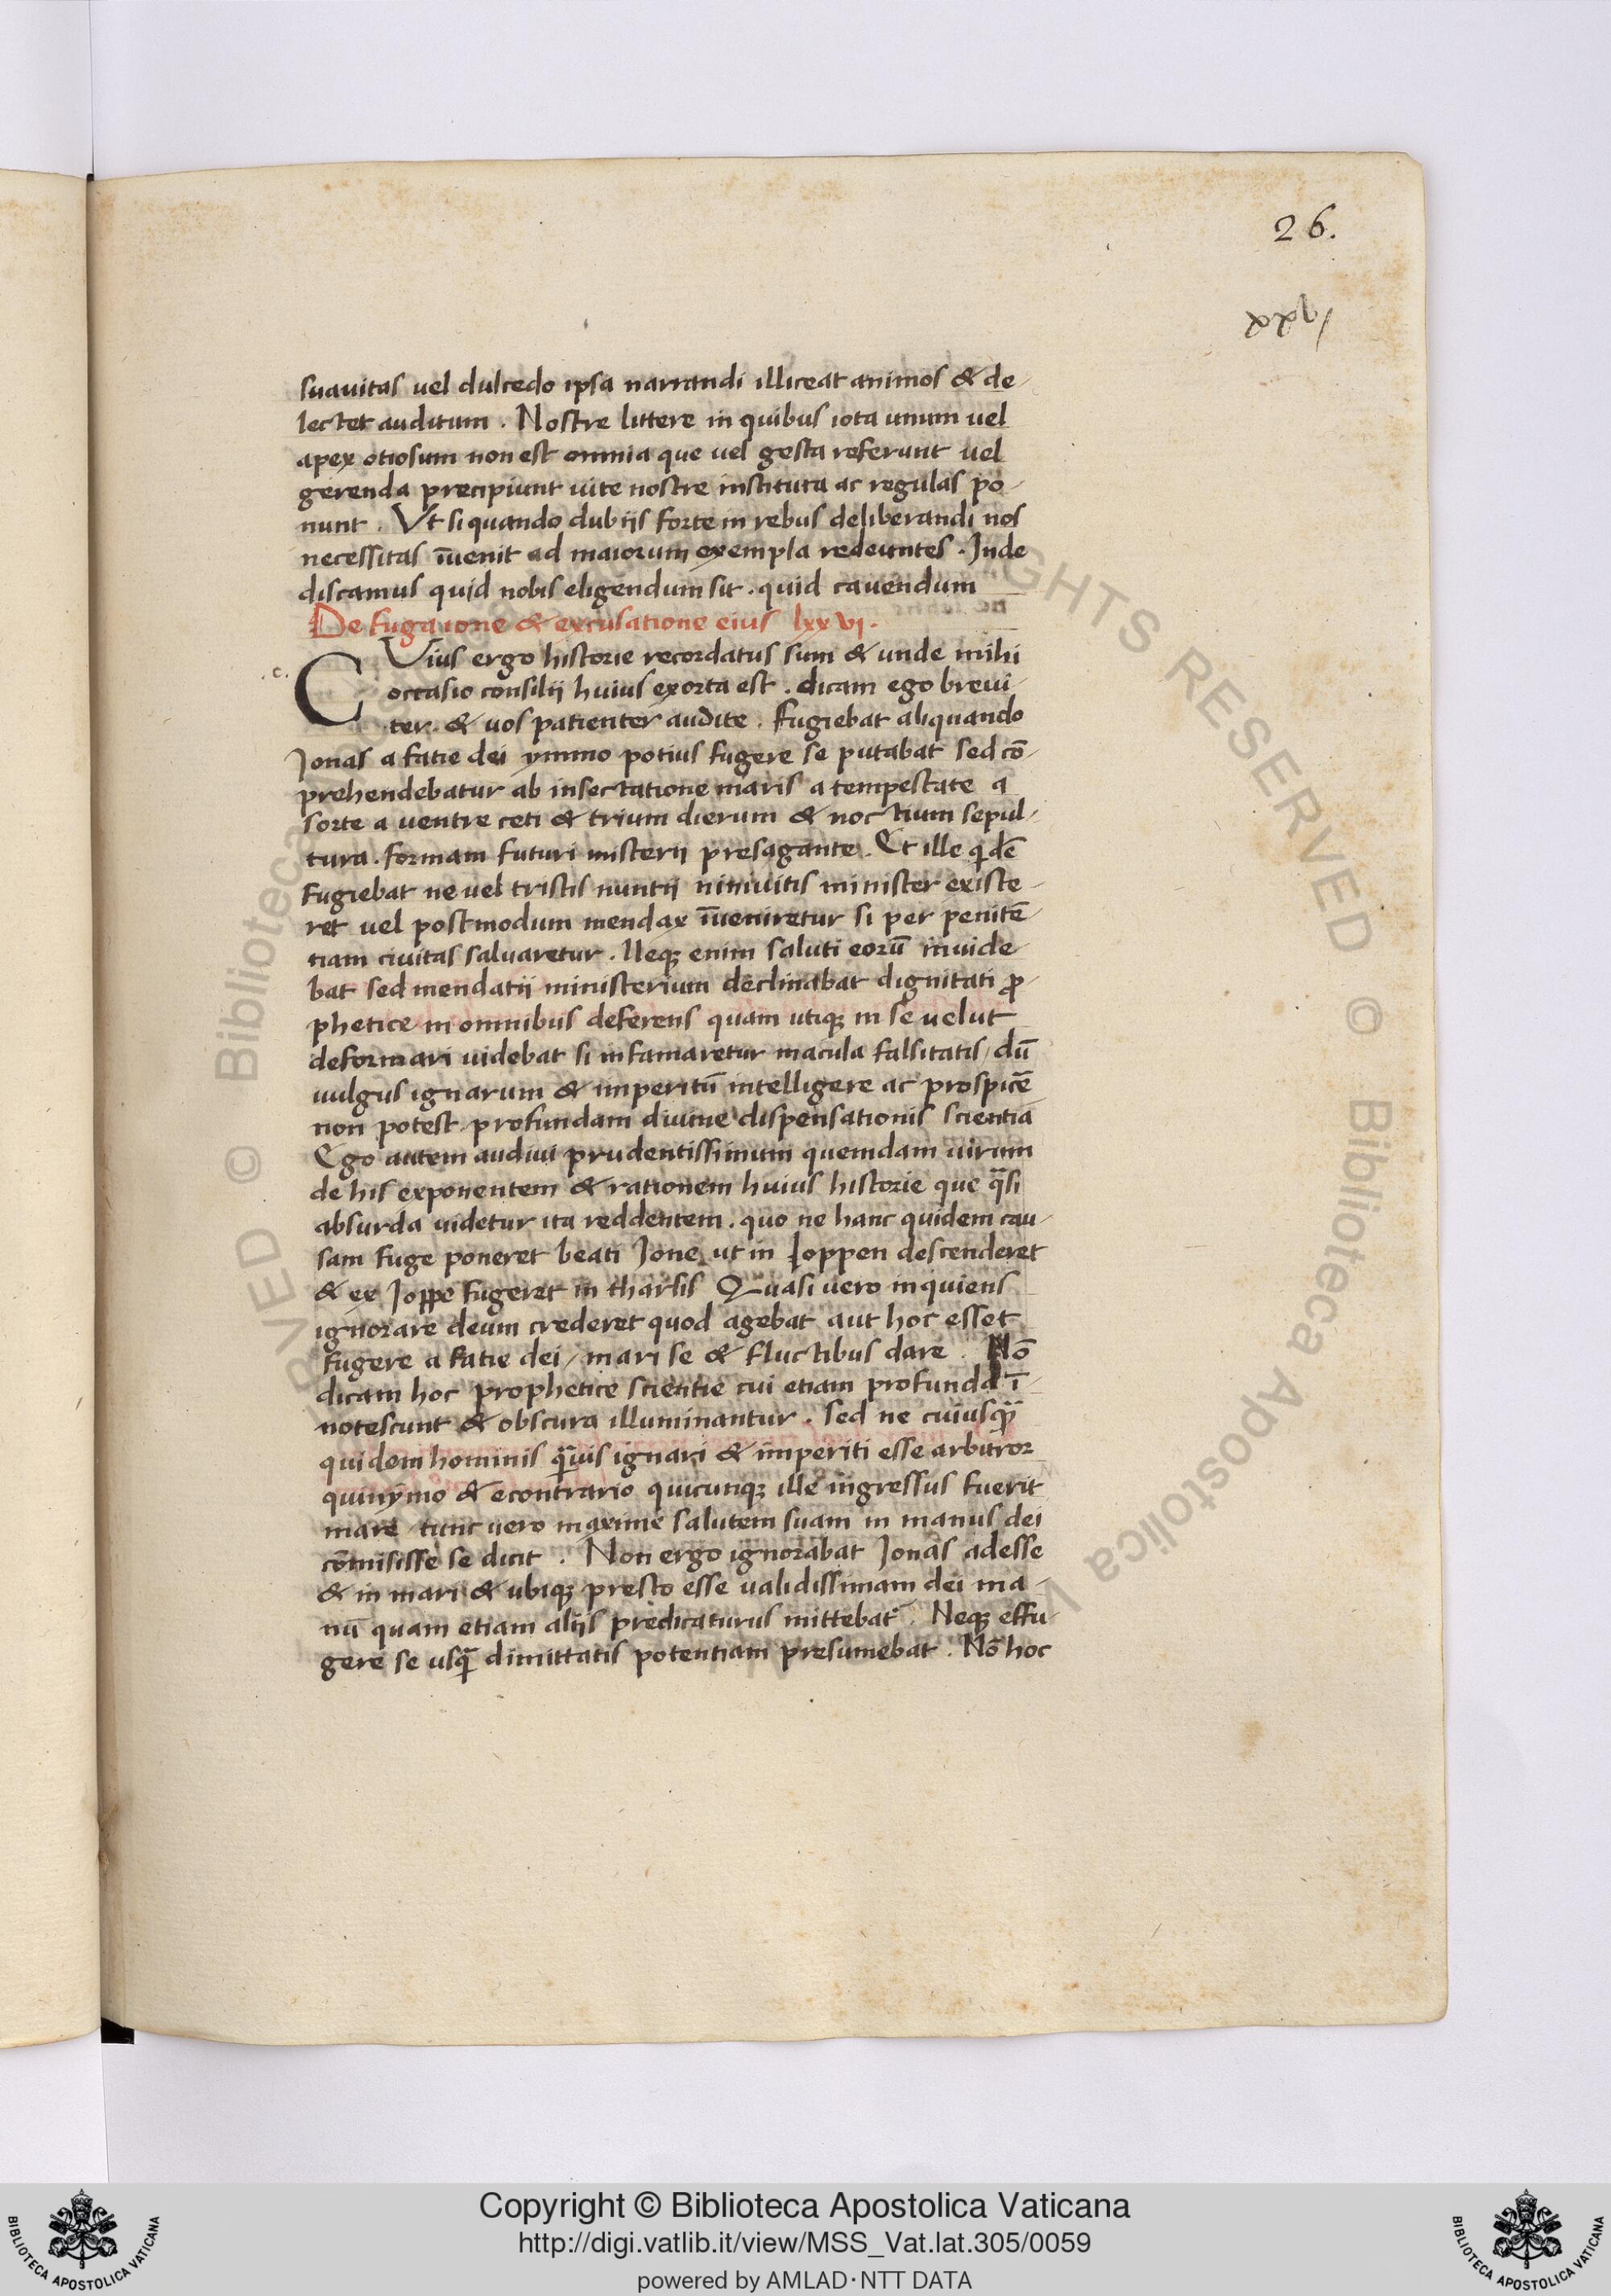 26.
xxvj
suavitas vel dulcedo ipsa narrandi illiceat animos & de-
lectet auditum. Nostre littere in quibus iota unum vel
apex otiosum non est omnia que vel gesta referunt vel
gerenda precipiunt vite nostre instituta ac regulas po-
nunt. Vt si quando dubiis forte in rebus deliberandi nos
necessitas īvenit ad maiorum exempla redeuntes. Inde
discamus quid nobis eligendum sit. quid cavendum
De fuga ione & excusatione eius lxxvj.
.c. CVius ergo historie recordatus sum & unde mihi
occasio consilii huius exorta est. dicam ego brevi-
ter. & vos patienter audite. Fugiebat aliquando
Jonas a facie dei ymmo potius fugere se putabat sed cō-
prehendebatur ab insectatione maris a tempestate a
sorte a ventre ceti & trium dierum & noctium sepul-
tura. formam futuri misterii presagante. Et ille qidē
fugiebat ne vel tristis nuntii ninivitis minister existe-
ret vel postmodum mendax īveniretur si per penitē-
tiam civitas salvaretur. Neqꝫ enim saluti eorū invide-
bat sed mendatii ministerium declinabat dignitati ꝓ-
phetice in omnibus deferens quam utiqꝫ in se velut
deformari videbat si infamaretur macula falsitatis / dū
vulgus ignarum & imperitū intelligere ac prospicē
non potest profundam divine dispensationis scientiā
Ego autem audivi prudentissimum quemdam virum
de his exponentem & rationem huius historie que q̄si
absurda videtur ita reddentem. quo ne hanc quidem cau-
sam fuge poneret beati Jone ut in Joppen descenderet
& ex Joppe fugeret in tharsis Quasi vero inquiens
ignorare deum crederet quod agebat aut hoc esset
fugere a facie dei / mari se & fluctibus dare. Nō
dicam hoc prophetice scientie cui etiam profunda ī-
notescunt & obscura illuminantur. sed ne cuiusq̄
quidem hominis q̄vis ignari & imperiti esse arbitror
quinymo & econtrario quicunqꝫ ille ingressus fuerit
mare tunc vero maxime salutem suam in manus dei
cōmisisse se dicit. Non ergo ignorabat Jonas adesse
& in mari & ubiqꝫ presto esse validissimam dei ma-
nū quam etiam aliis predicaturus mittebat. Neqꝫ effu-
gere se usq̄ dimittatis potentiam presumebat. Nō hoc
RVED © Biblioteca
RIGHTS RESERVED © Biblioteca Apostolica V
Copyright © Biblioteca Apostolica Vaticana
http://digi.vatlib.it/view/MSS_Vat.lat.305/0059
powered by AMLAD·NTT DATA
BIBLIOTECA APOSTOLICA VATICANA
BIBLIOTECA APOSTOLICA VATICANA